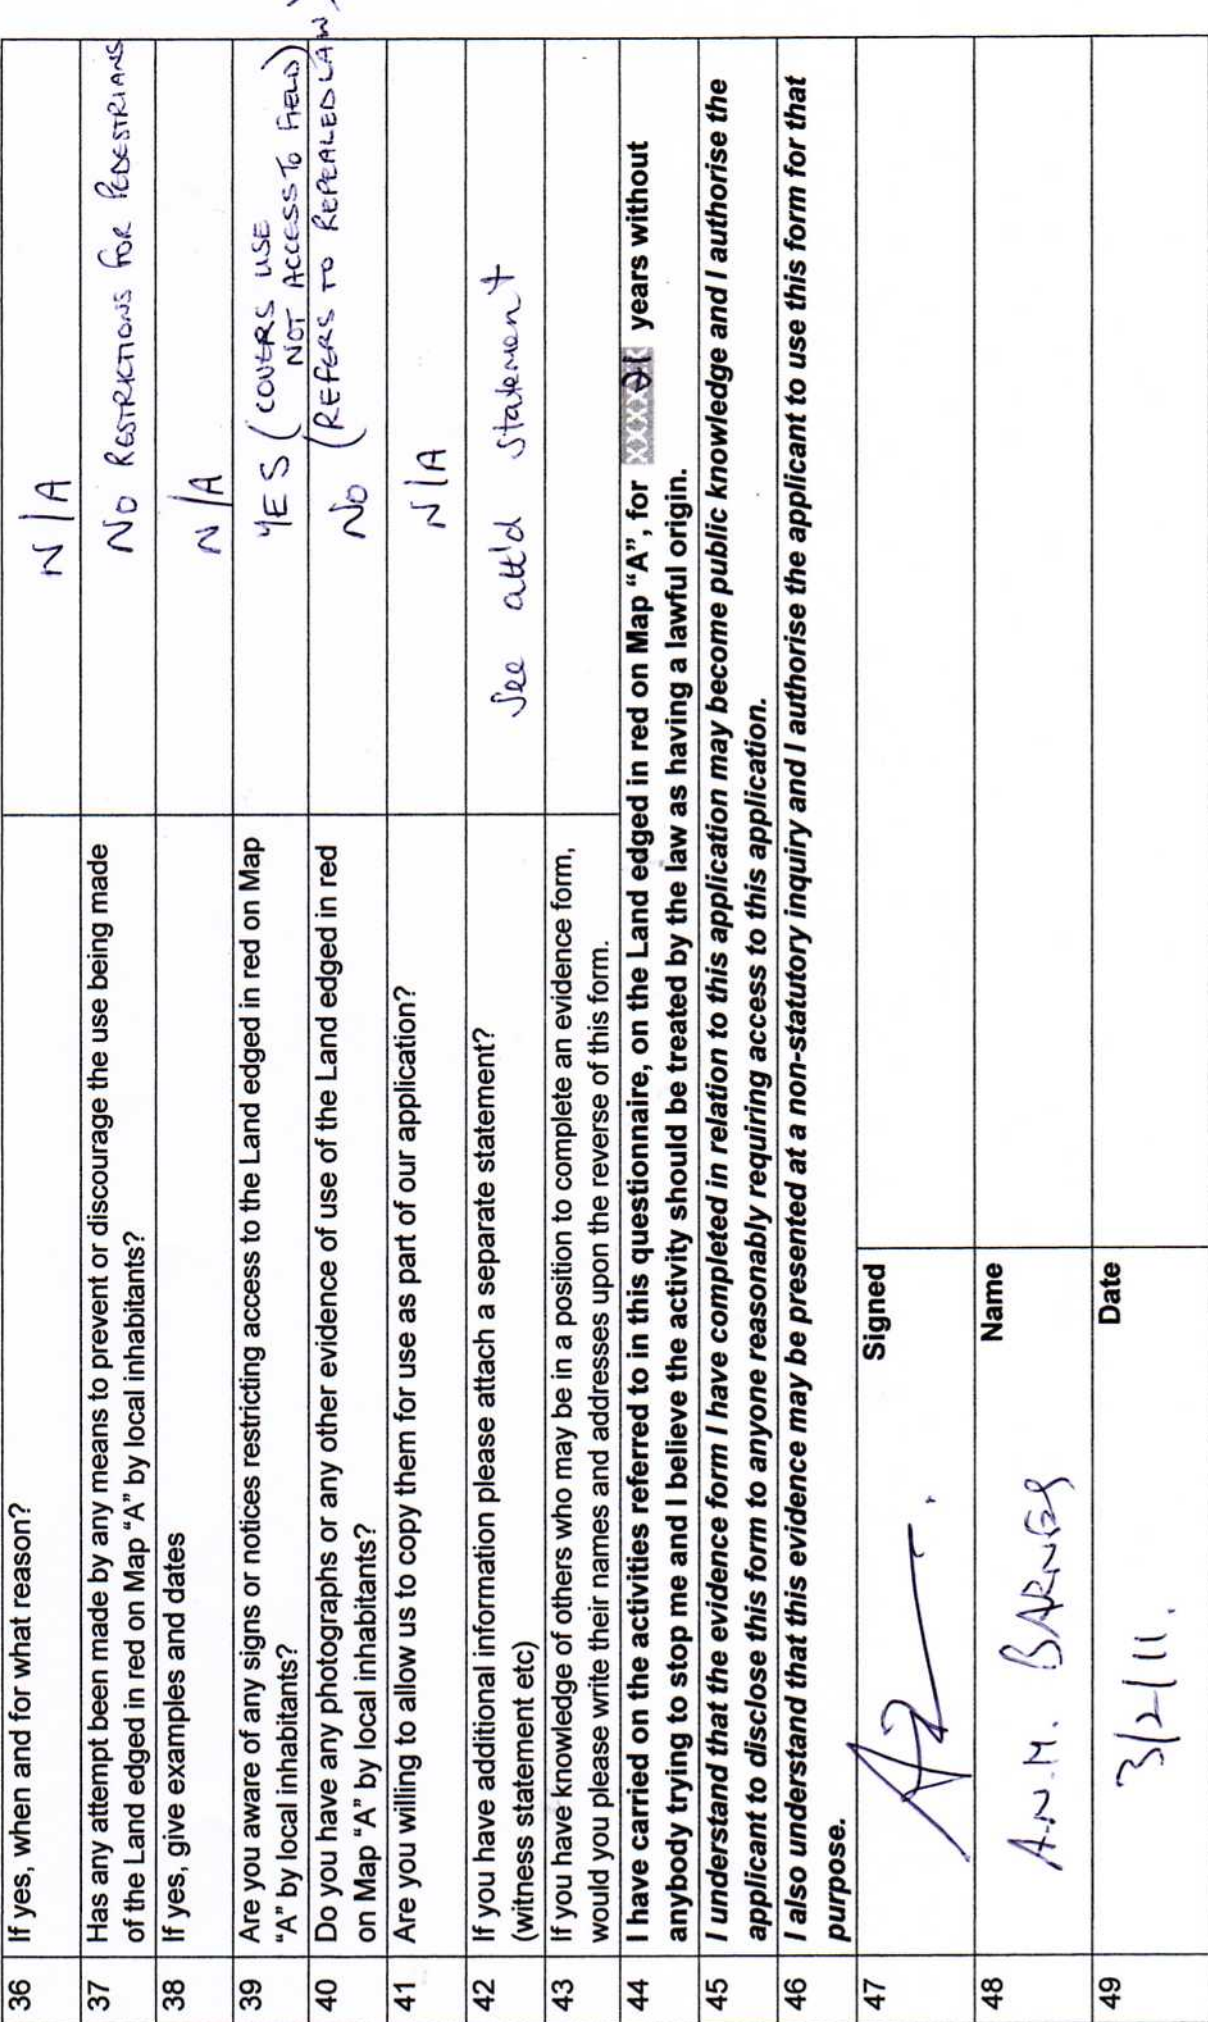 36 If yes, when and for what reason? N/A
37 Has any attempt been made by any means to prevent or discourage the use being made
of the Land edged in red on Map "A" by local inhabitants? NO RESTRICTIONS FOR PEDESTRIANS
38 If yes, give examples and dates N/A
39 Are you aware of any signs or notices restricting access to the Land edged in red on Map
"A" by local inhabitants? YES (COVERS USE
NOT ACCESS TO FIELD)
(REFERS TO REPEALED LAW)
40 Do you have any photographs or any other evidence of use of the Land edged in red
on Map "A" by local inhabitants? No
41 Are you willing to allow us to copy them for use as part of our application? N/A
42 If you have additional information please attach a separate statement?
(witness statement etc) See att'd statement
43 If you have knowledge of others who may be in a position to complete an evidence form,
would you please write their names and addresses upon the reverse of this form.
44 I have carried on the activities referred to in this questionnaire, on the Land edged in red on Map "A", for XXXX years without
anybody trying to stop me and I believe the activity should be treated by the law as having a lawful origin.
45 I understand that the evidence form I have completed in relation to this application may become public knowledge and I authorise the
applicant to disclose this form to anyone reasonably requiring access to this application.
46 I also understand that this evidence may be presented at a non-statutory inquiry and I authorise the applicant to use this form for that
purpose.
47 Signed
48 A.N.M. BARNES Name
49 3/2/11. Date